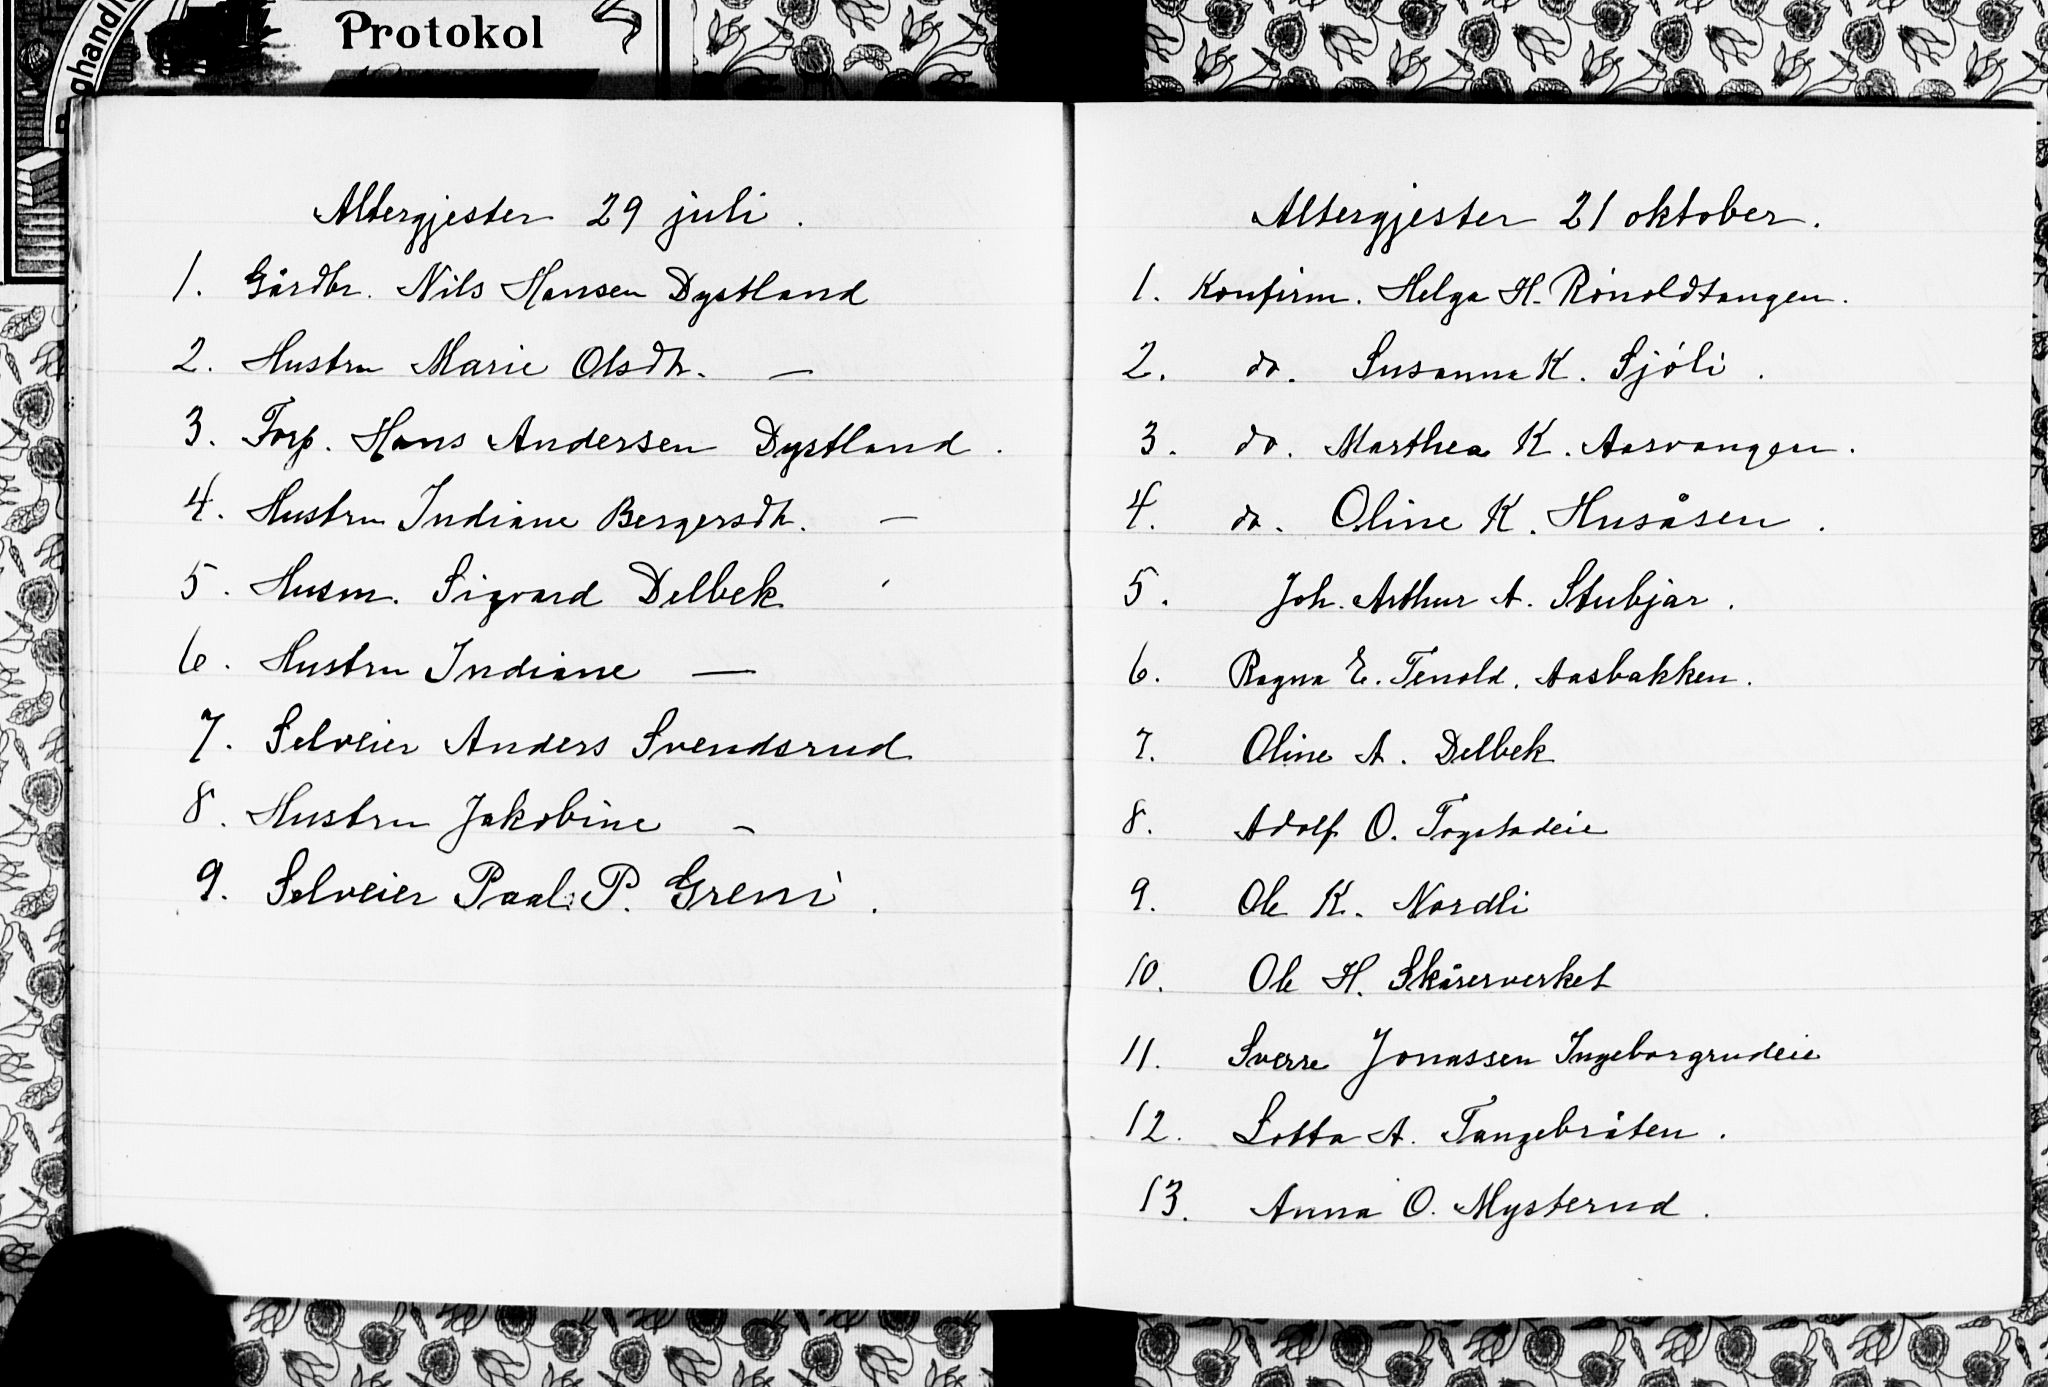 Protokol
Altergjester 29 juli.
1. Gårdbr. Nils Hansen Dystland
2. Hustru Marie Olsdtr. —
3. Torp. Hans Andersen Dystland.
4. Hustru Indiane Bergersdtr. —
5. Husm. Sigvard Delbek
6. Hustru Indiane —
7. Selveier Anders Svendsrud
8. Hustru Jakobine —
9. Selveier Paal P. Greni.
Altergjester 21 oktober.
1. Konfirm. Helga H. Rønoldtangen.
2. do. Susanna K. Sjøli.
3. do. Marthea K. Aasvangen.
4. do. Oline K. Husåsen.
5. Joh. Arthur A. Stubjar.
6. Ragna E. Tenold. Aasbakken.
7. Oline A. Delbek
8. Adolf O. Togstadeie
9. Ole K. Nordli
10. Ole H. Skårerverket
11. Sverre Jonassen Ingeborgrudeie
12. Lotta A. Tangebråten.
13. Anna O. Mysterud.